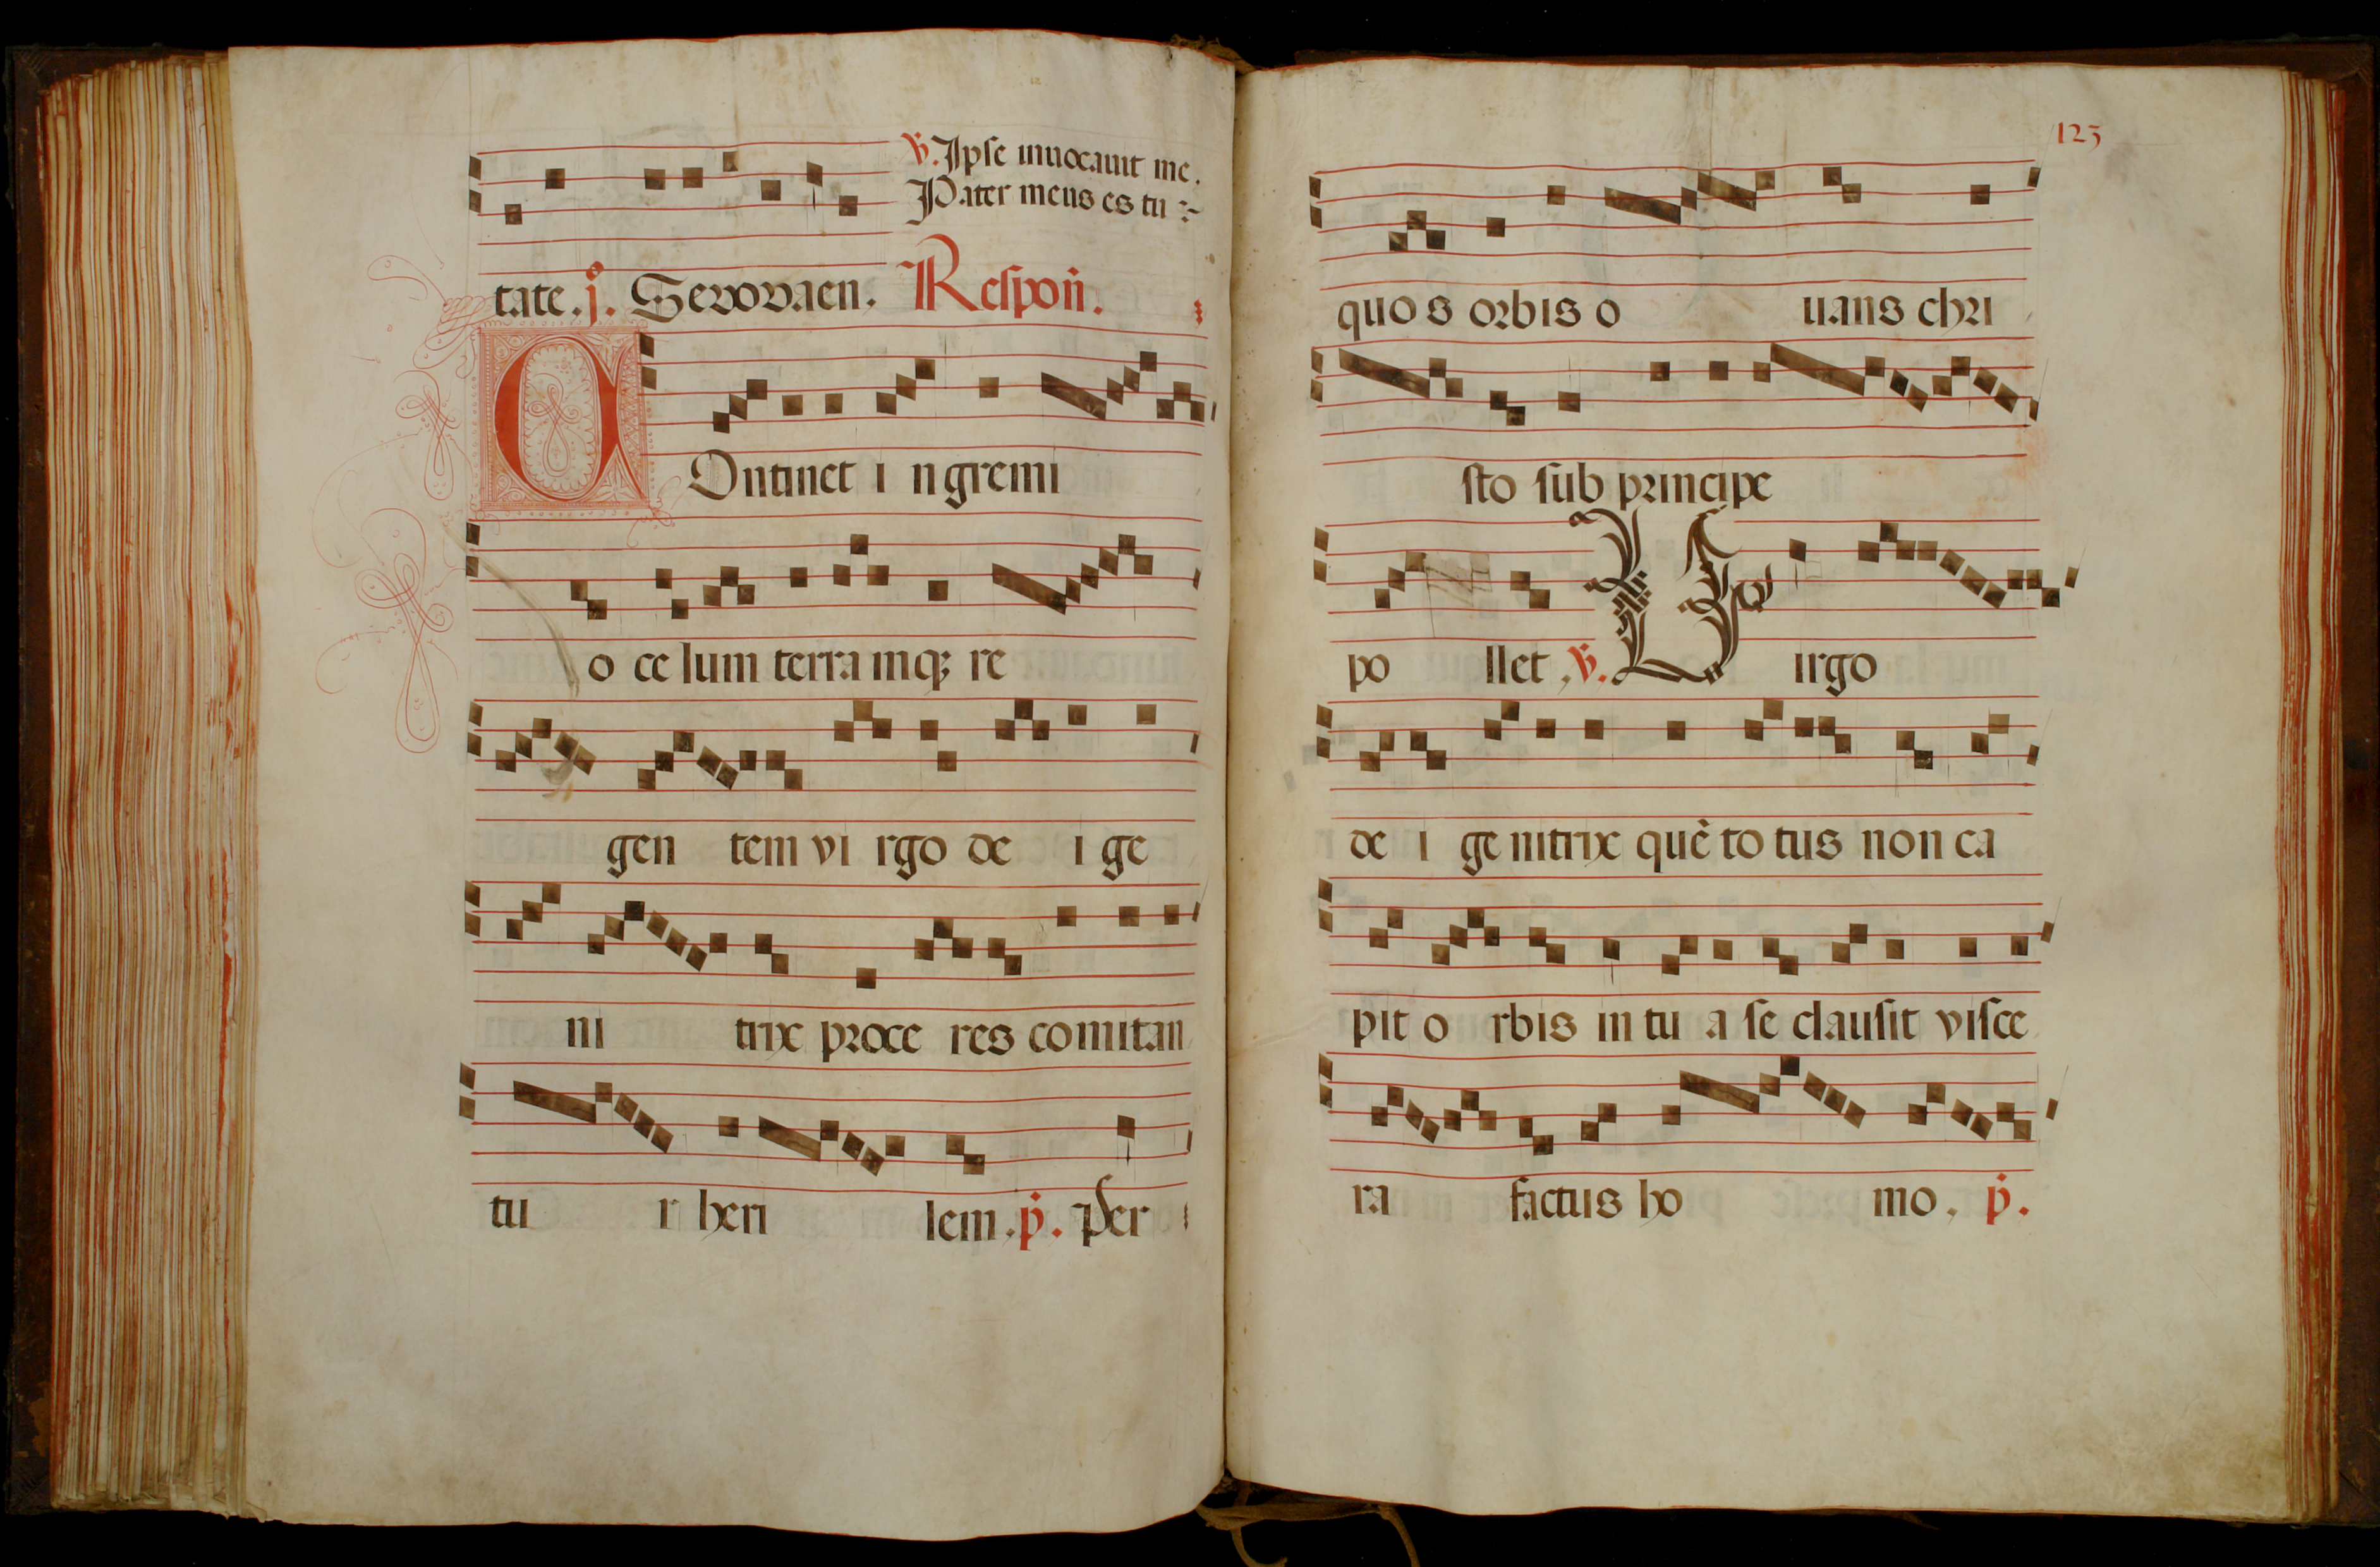 ℣. Ipse inuocauit me.
Pater meus es tu
tate. j. Seuouaen. Respoñ.
C Ontinet i n gremi
o ce lum terra mq; re
gen tem vi rgo de i ge
ni trix proce res comitan
tu r heri lem. p̈. Per
123
quo s orbis o uans chri
sto sub principe
po llet ℣. V irgo
de i ge nitrix quē to tus non ca
pit o rbis in tu a se clausit visce
ra factus ho mo. p̈.